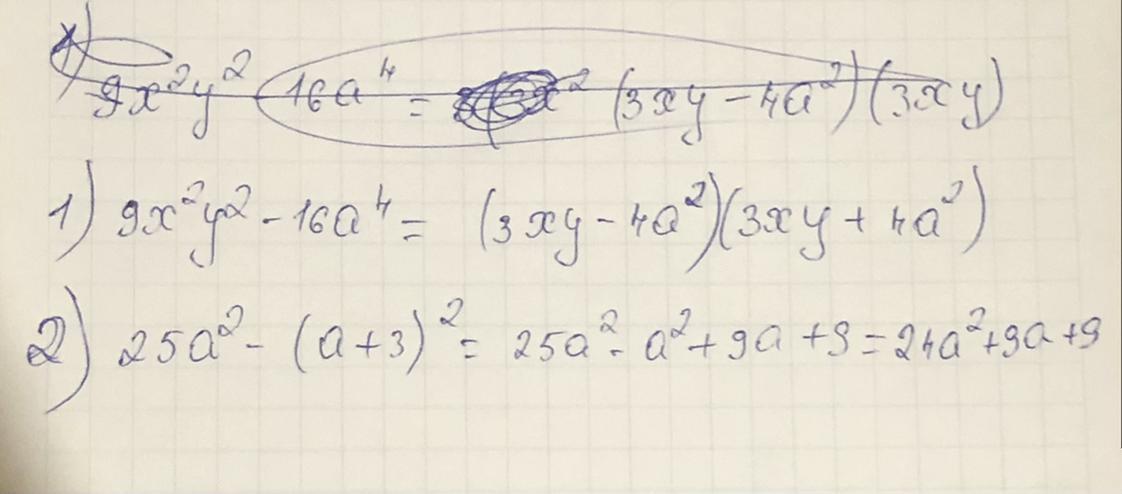 9x²y² 16a⁴ = (3xy - 4a²)(3xy)
1) 9x²y² - 16a⁴ = (3xy - 4a²)(3xy + 4a²)
2) 25a² - (a+3)² = 25a² - a² + 9a + 9 = 24a² + 9a + 9